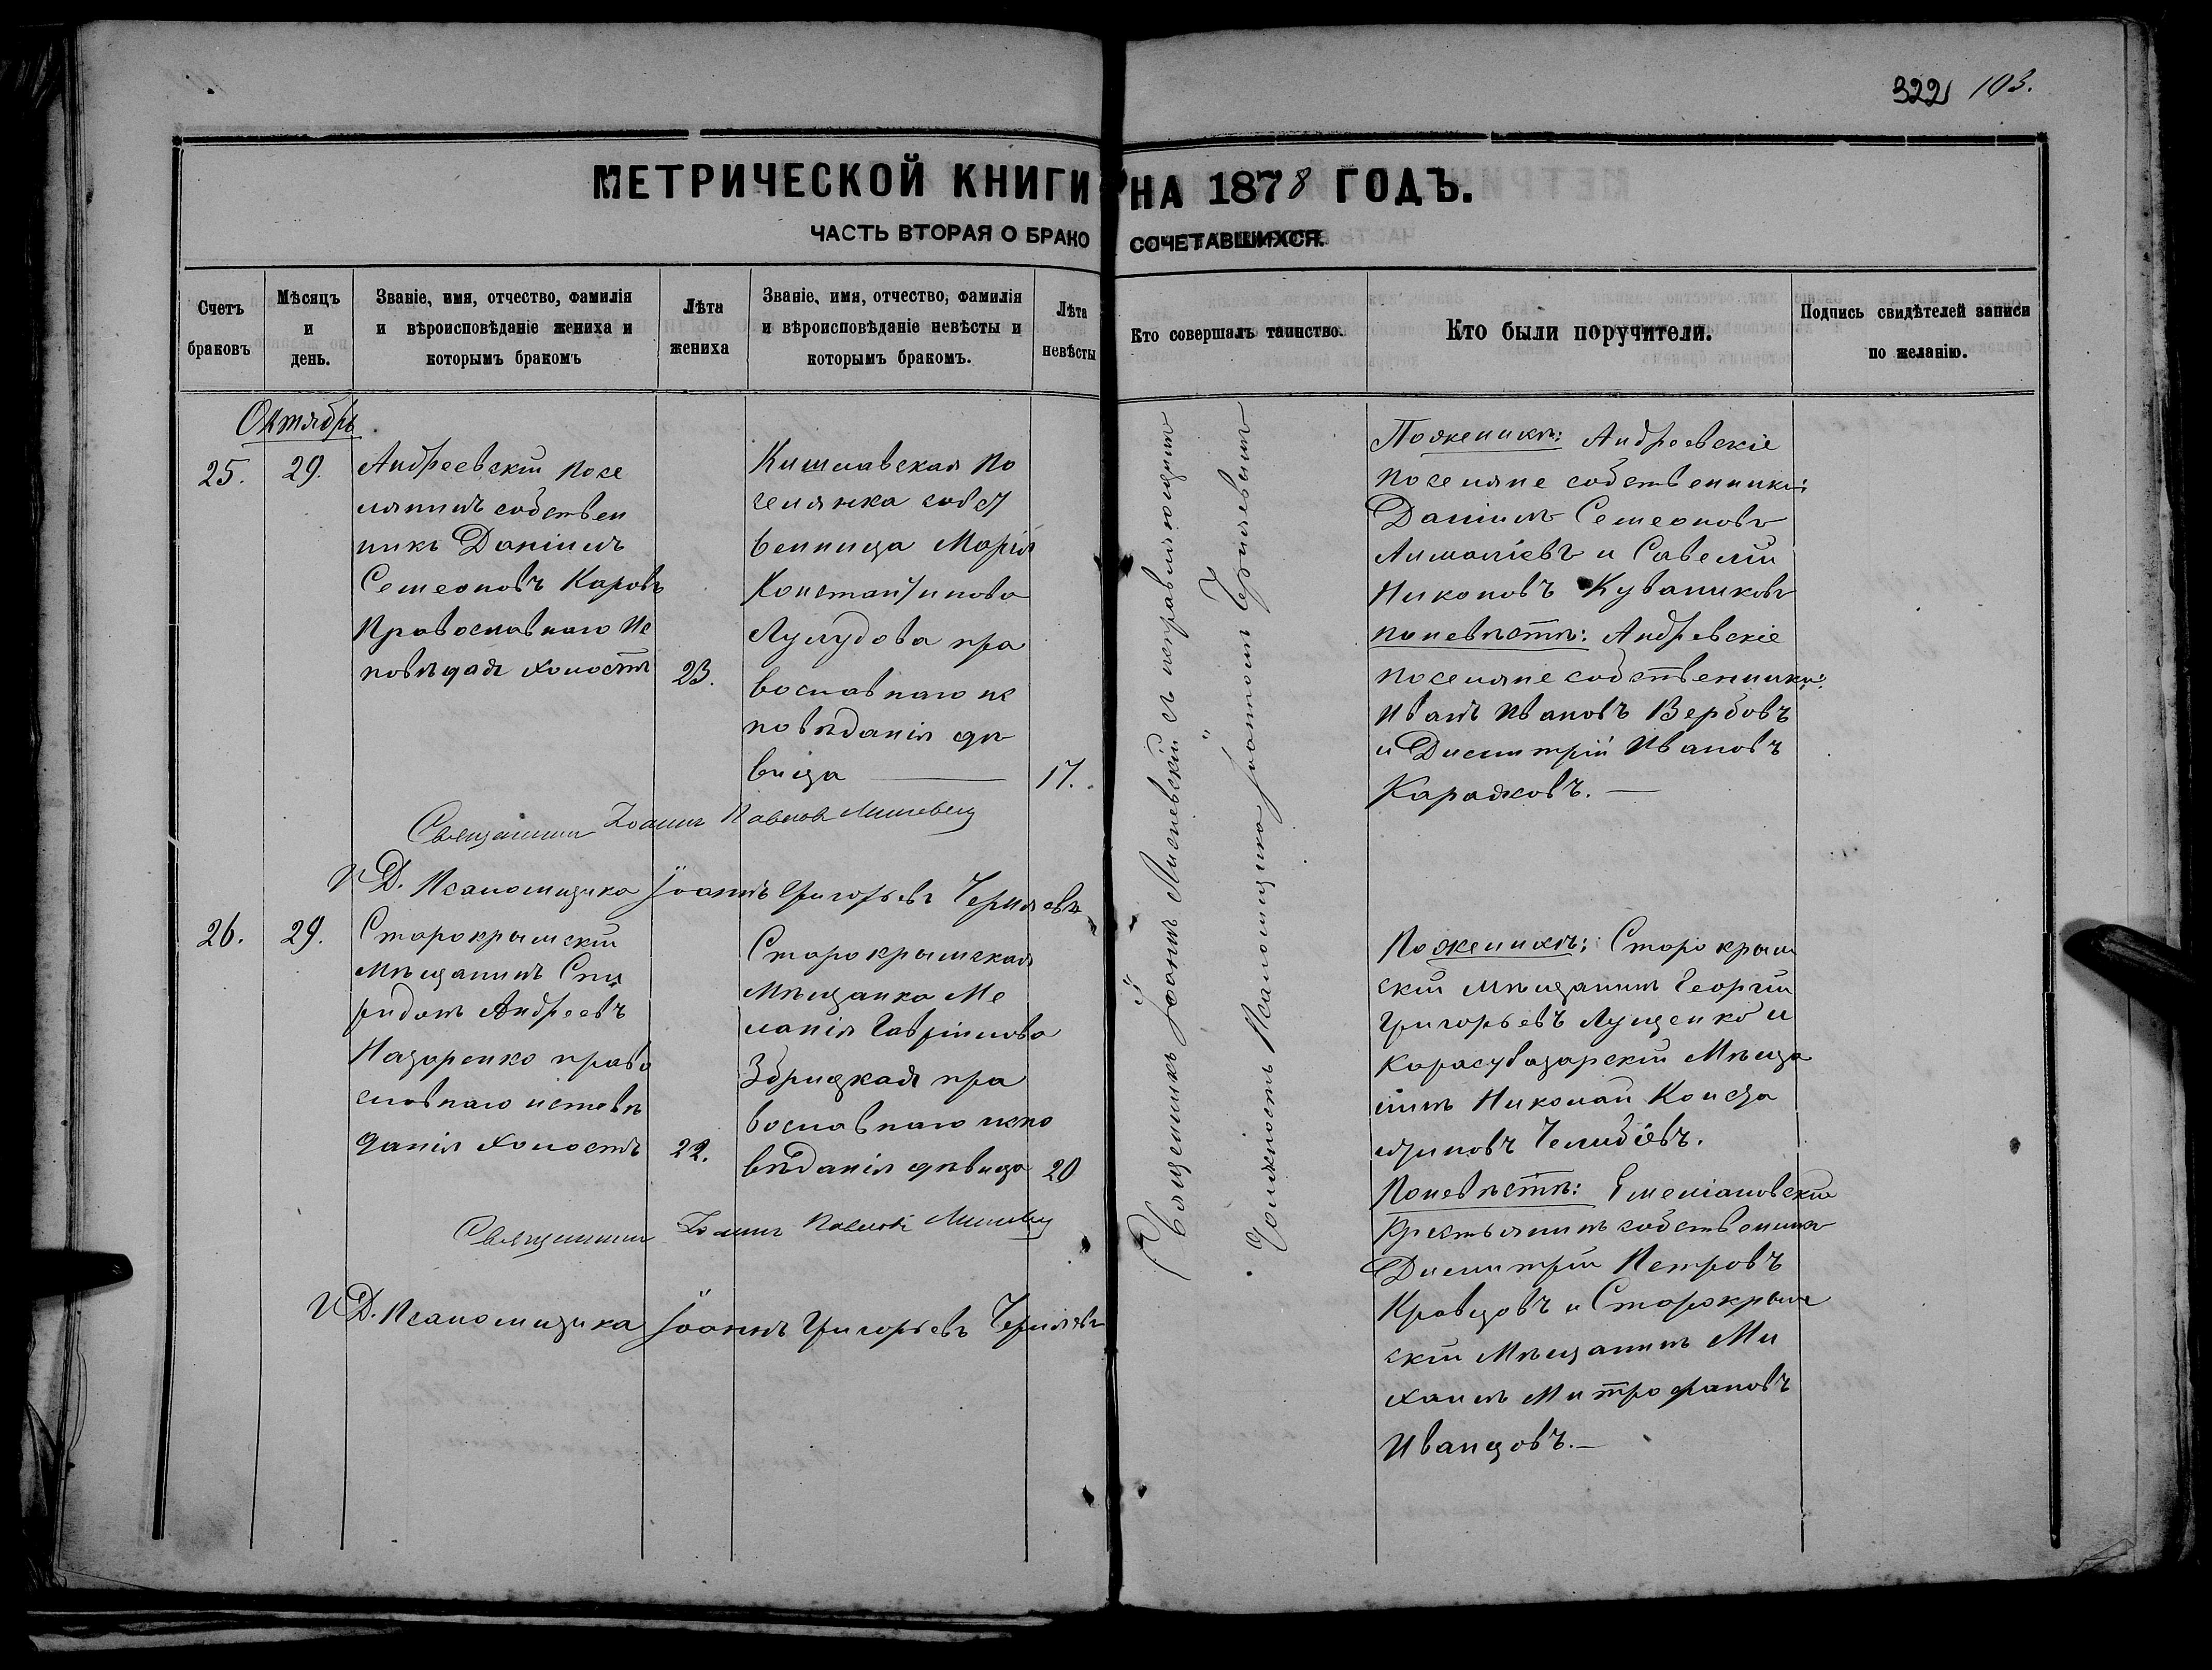 322 103.
МЕТРИЧЕСКОЙ КНИГИ НА 1878 ГОДЪ.
ЧАСТЬ ВТОРАЯ О БРАКО СОЧЕТАВШИХСЯ.
Счетъ браковъ
Мѣсяцъ и день.
Званіе, имя, отчество, фамилія и вѣроисповѣданіе жениха и которымъ бракомъ
Лѣта жениха
Званіе, имя, отчество, фамилія и вѣроисповѣданіе невѣсты и которымъ бракомъ.
Лѣта невѣсты
Кто совершалъ таинство.
Кто были поручители.
Подпись свидѣтелей записи по желанію.
Октябрь
25.
29.
Андреевскій посе
лянинъ собствен
никъ Даніилъ
Семеоновъ Каровъ
Православнаго Ис
повѣдая холостъ
23.
Кишлавская по
селянка собст
венница Марія
Константинова
пра
вославнаго ис
повѣданія дѣ
вица
17.
Священникъ Іоаннъ Павлов
И Д. Псаломщика Іоаннъ Григорьевъ Черняевъ
26.
29.
Старокрымскій
мѣщанинъ Спи
ридонъ Андреевъ
Назаренко право
славнаго исповѣ
данія холостъ
22.
Старокрымская
мѣщанка Ме
ланія Гавріилова
Збрицкая пра
вославнаго испо
вѣданія дѣвица
20
Священникъ Іоаннъ Павловъ
И Д. Псаломщика Іоаннъ Григорьевъ Черняевъ
Священникъ Іоаннъ Лисневскій съ исправляющимъ
Должность Псаломщика Іоанномъ Черняевымъ
По женихѣ: Андреевскіе
поселяне собственники:
Даніилъ Семеоновъ
и Савелій
Никоновъ Куванжовъ
по невѣстѣ: Андреевскіе
поселяне собственники:
Иванъ Ивановъ Вербовъ
и Димитрій Ивановъ
Каражовъ.
По женихѣ: Старокрым
скій мѣщанинъ Георгій
Григорьевъ Лущенко и
Карасубазарскій Мѣща
нинъ Николай Конста
нтиновъ Челибіевъ.
По невѣстѣ: Емеліановскій
крестьянинъ собственникъ
Димитрій Петровъ
Кравцовъ и Старокрым
скій Мѣщанинъ Ми
хаилъ Митрофановъ
Иванцовъ.